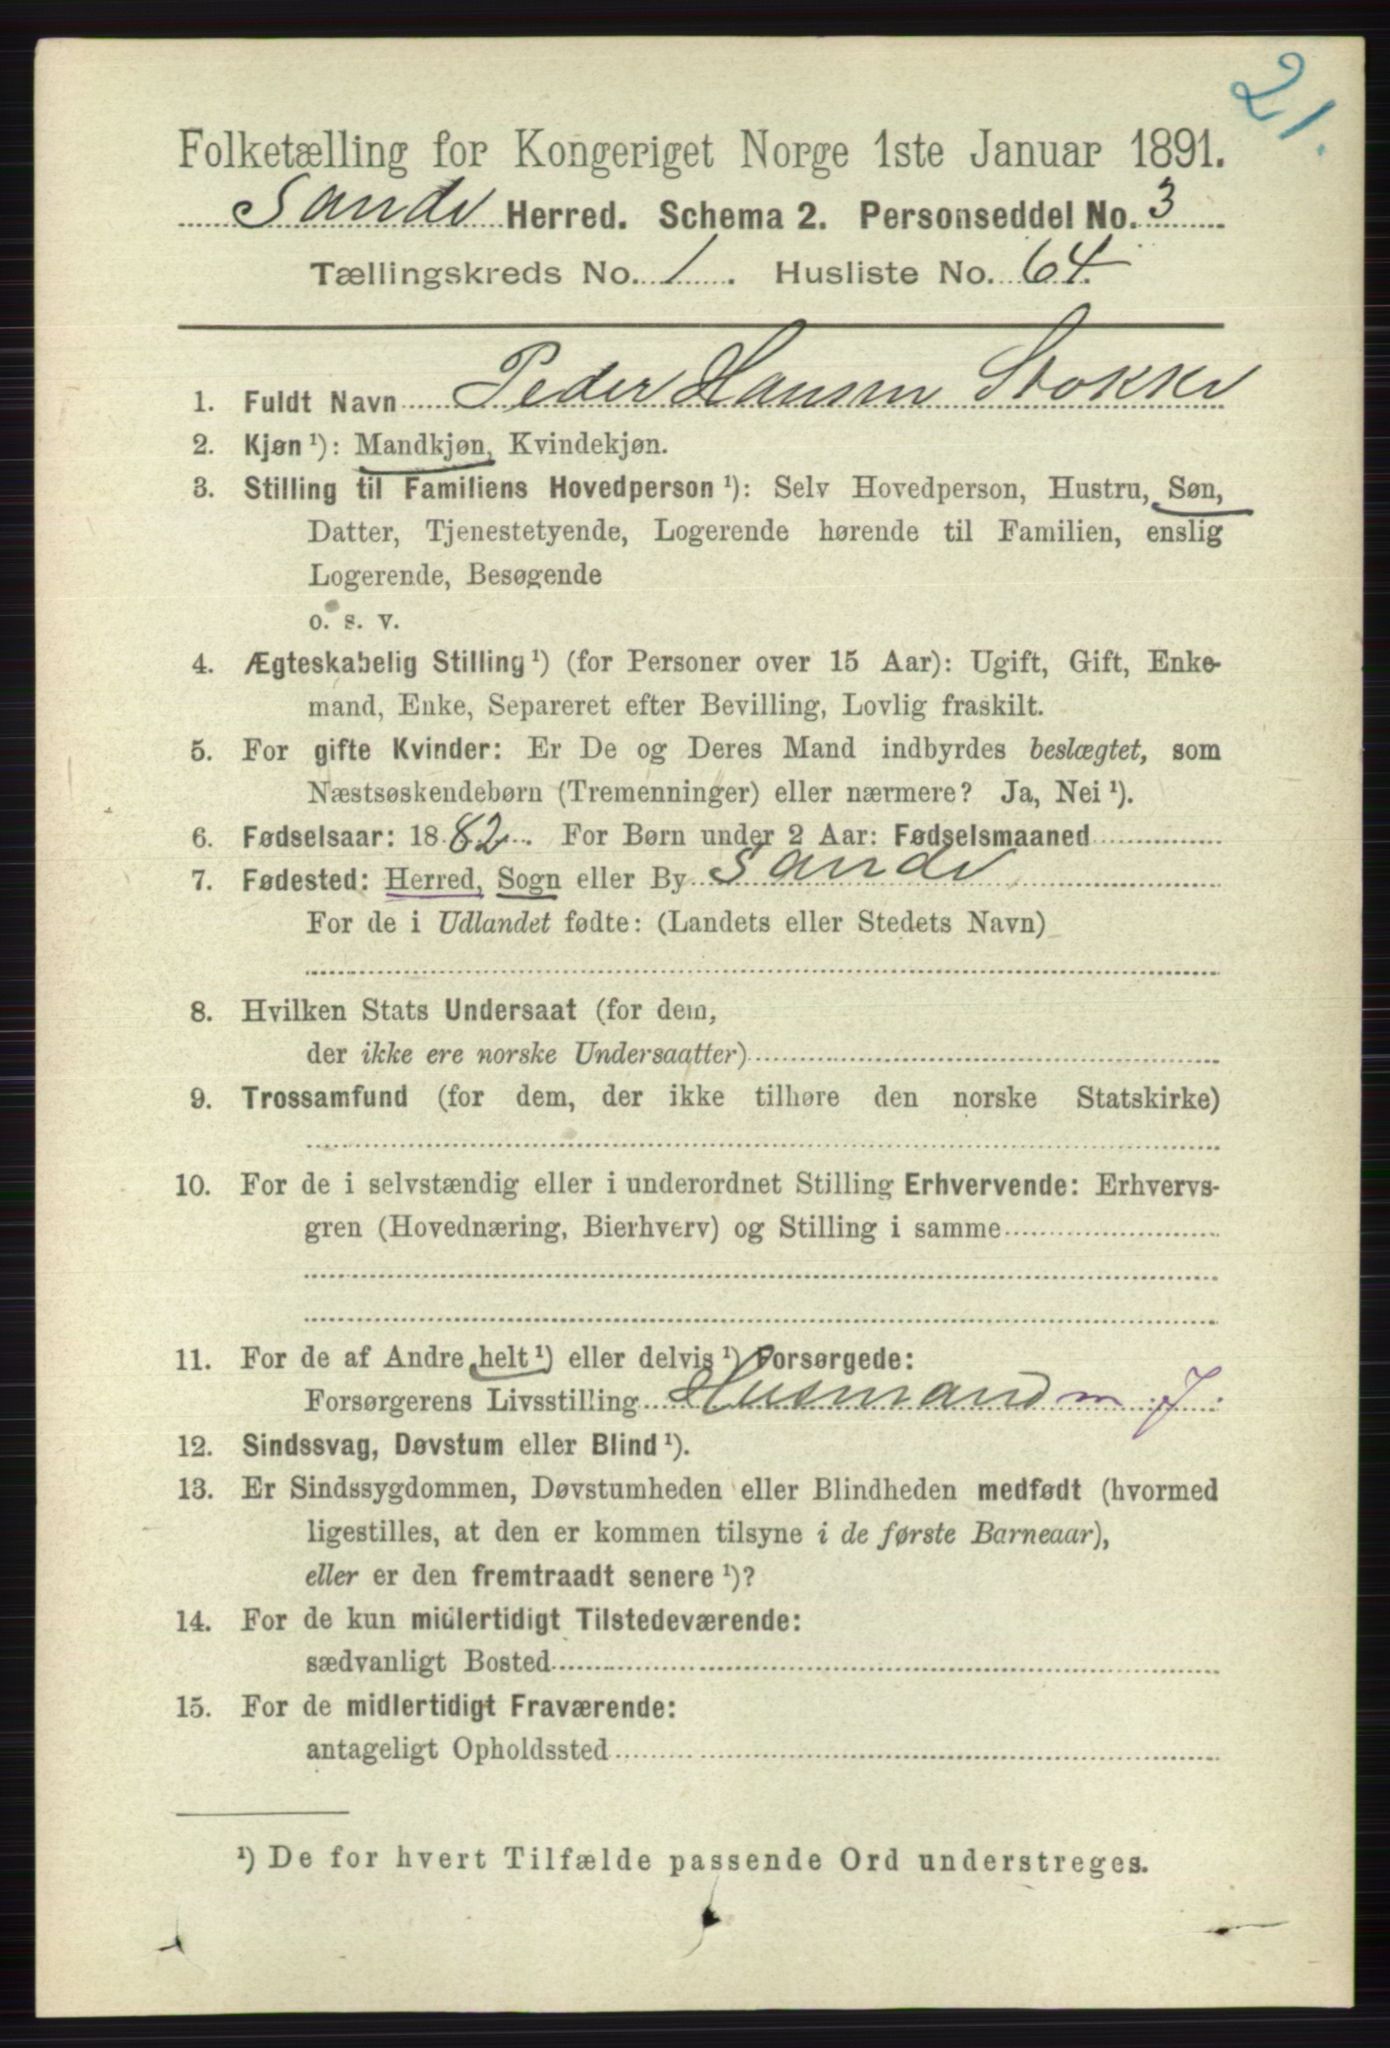 21.
Folketælling for Kongeriget Norge 1ste Januar 1891.
Sande Herred. Schema 2. Personseddel No. 3
Tællingskreds No. 1. Husliste No. 64
1. Fuldt Navn Peder Hansen Stokke
2. Kjøn ¹): Mandkjøn, Kvindekjøn.
3. Stilling til Familiens Hovedperson ¹): Selv Hovedperson, Hustru, Søn,
Datter, Tjenestetyende, Logerende hørende til Familien, enslig
Logerende, Besøgende
o. s. v.
4. Ægteskabelig Stilling ¹) (for Personer over 15 Aar): Ugift, Gift, Enke-
mand, Enke, Separeret efter Bevilling, Lovlig fraskilt.
5. For gifte Kvinder: Er De og Deres Mand indbyrdes beslægtet, som
Næstsøskendebørn (Tremenninger) eller nærmere? Ja, Nei ¹).
6. Fødselsaar: 1882. For Børn under 2 Aar: Fødselsmaaned
7. Fødested: Herred, Sogn eller By Sande
For de i Udlandet fødte: (Landets eller Stedets Navn)
8. Hvilken Stats Undersaat (for dem,
der ikke ere norske Undersaatter)
9. Trossamfund (for dem, der ikke tilhøre den norske Statskirke)
10. For de i selvstændig eller i underordnet Stilling Erhvervende: Erhvervs-
gren (Hovednæring, Bierhverv) og Stilling i samme
11. For de af Andre helt ¹) eller delvis ¹) Forsørgede:
Forsørgerens Livsstilling Husmand m J.
12. Sindssvag, Døvstum eller Blind ¹).
13. Er Sindssygdommen, Døvstumheden eller Blindheden medfødt (hvormed
ligestilles, at den er kommen tilsyne i de første Barneaar),
eller er den fremtraadt senere ¹)?
14. For de kun midlertidigt Tilstedeværende:
sædvanligt Bosted
15. For de midlertidigt Fraværende:
antageligt Opholdssted
¹) De for hvert Tilfælde passende Ord understreges.